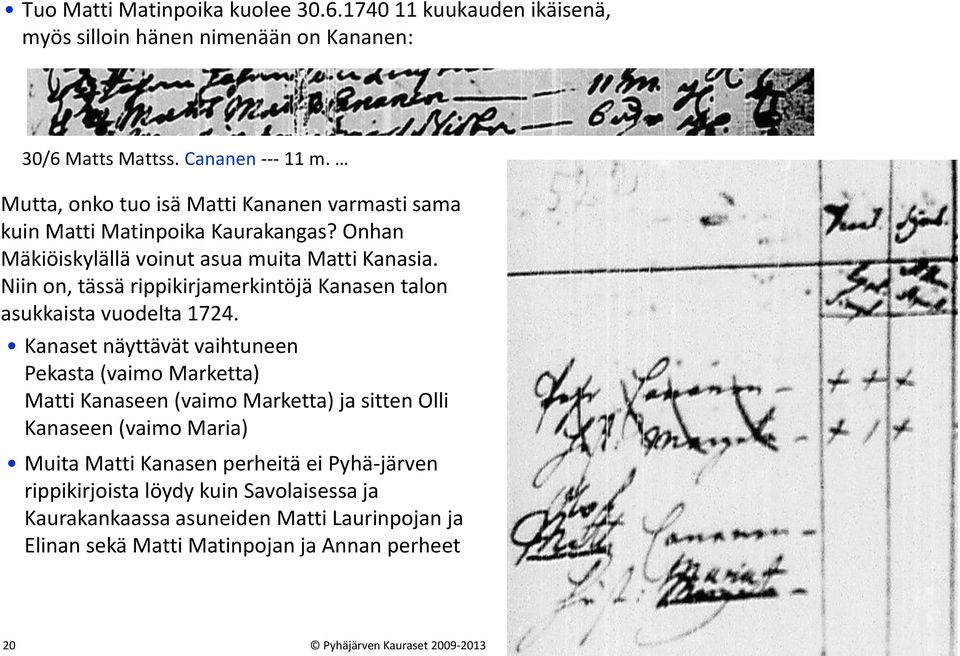 • Tuo Matti Matinpoika kuolee 30.6.1740 11 kuukauden ikäisenä,
myös silloin hänen nimenään on Kananen:
Matts Matts Cananen — 11 m.
30/6 Matts Mattss. Cananen --- 11 m. …
Mutta, onko tuo isä Matti Kananen varmasti sama
kuin Matti Matinpoika Kaurakangas? Onhan
Mäkiöiskylällä voinut asua muita Matti Kanasia.
Niin on, tässä rippikirjamerkintöjä Kanasen talon
asukkaista vuodelta 1724.
• Kanaset näyttävät vaihtuneen
Pekasta (vaimo Marketta)
Matti Kanaseen (vaimo Marketta) ja sitten Olli
Kanaseen (vaimo Maria)
• Muita Matti Kanasen perheitä ei Pyhä-järven
rippikirjoista löydy kuin Savolaisessa ja
Kaurakankaassa asuneiden Matti Laurinpojan ja
Elinan sekä Matti Matinpojan ja Annan perheet
Cananen – + + +
– + / +
Matti Cananen –
Maria
20
© Pyhäjärven Kauraset 2009-2013